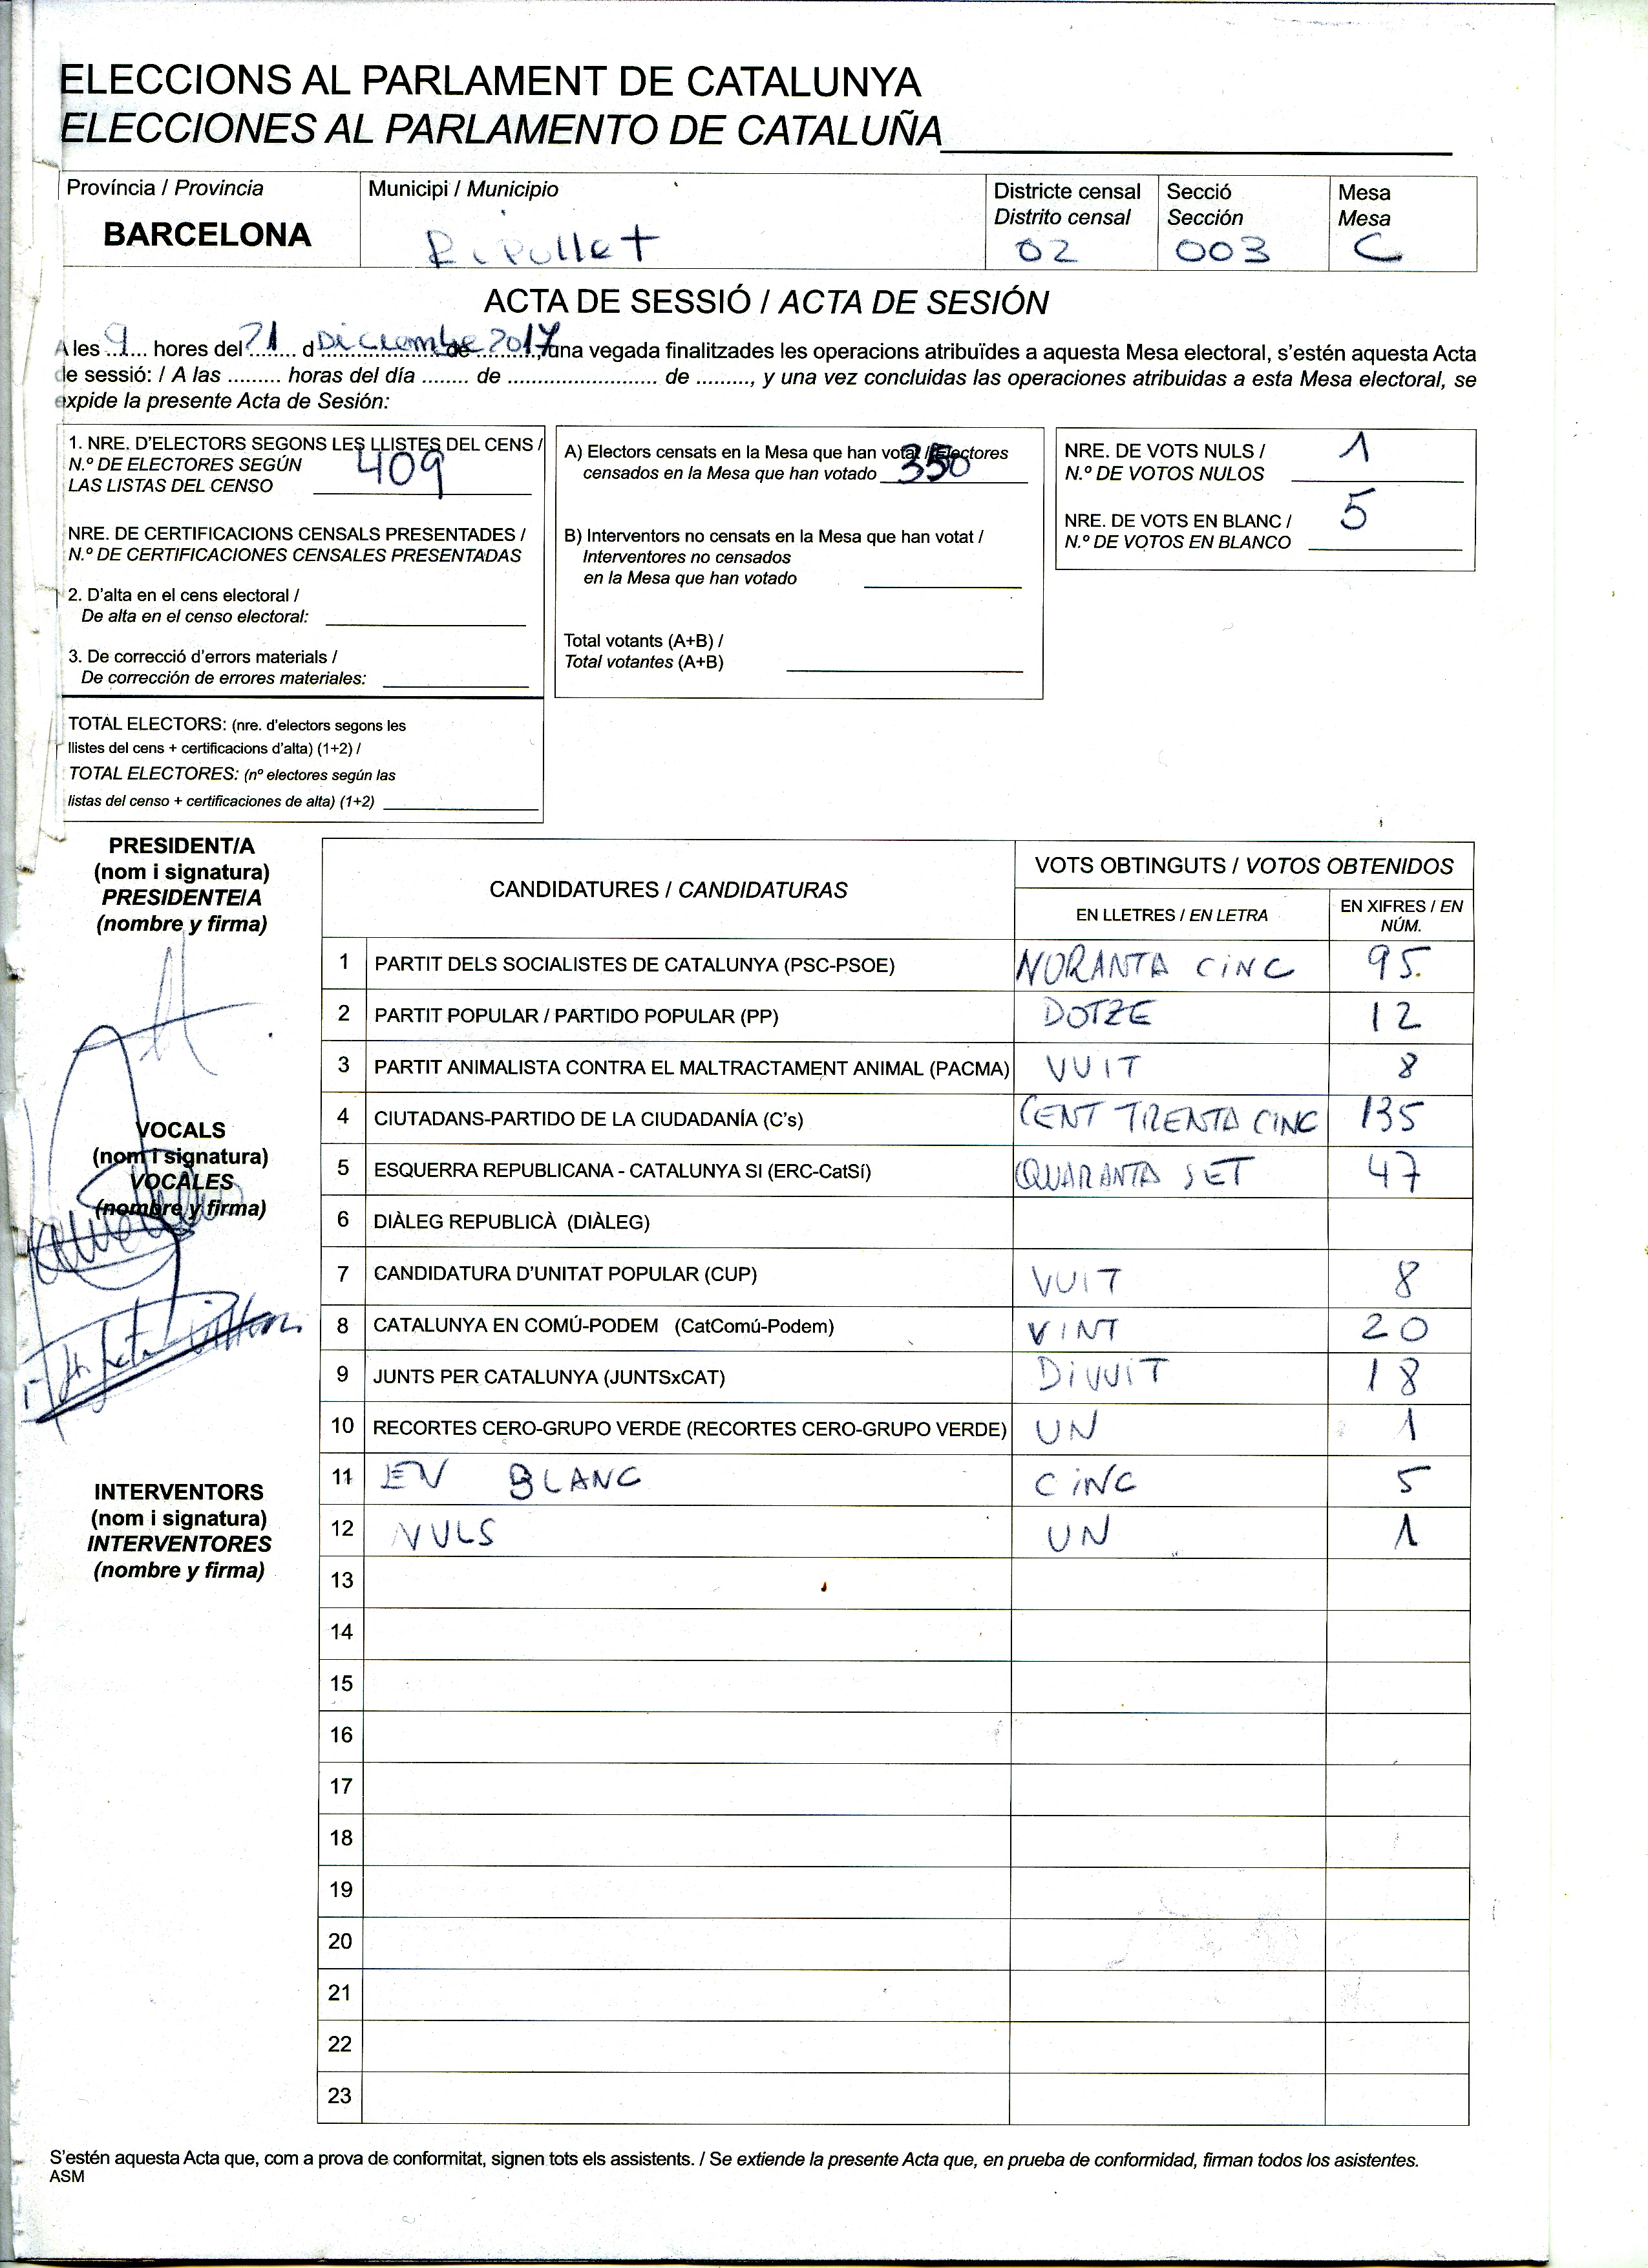 ELECCIONS AL PARLAMENT DE CATALUNYA
ELECCIONES AL PARLAMENTO DE CATALUÑA
Província / Provincia
BARCELONA
Municipi / Municipio
Ripollet
Districte censal
Distrito censal
02
Secció
Sección
003
Mesa
Mesa
C
ACTA DE SESSIÓ / ACTA DE SESIÓN
A les 9 hores del 21 d Diciembre de 2017, una vegada finalitzades les operacions atribuïdes a aquesta Mesa electoral, s'estén aquesta Acta
de sessió: / A las ......... horas del día ........ de .......................... de ........., y una vez concluidas las operaciones atribuidas a esta Mesa electoral, se
expide la presente Acta de Sesión:
1. NRE. D'ELECTORS SEGONS LES LLISTES DEL CENS /
N.º DE ELECTORES SEGÚN
LAS LISTAS DEL CENSO 409
NRE. DE CERTIFICACIONS CENSALS PRESENTADES /
N.º DE CERTIFICACIONES CENSALES PRESENTADAS
2. D'alta en el cens electoral /
De alta en el censo electoral:
3. De correcció d'errors materials /
De corrección de errores materiales:
TOTAL ELECTORS: (nre. d'electors segons les
llistes del cens + certificacions d'alta) (1+2) /
TOTAL ELECTORES: (nº electores según las
listas del censo + certificaciones de alta) (1+2)
A) Electors censats en la Mesa que han votat / Electores
censados en la Mesa que han votado 350
B) Interventors no censats en la Mesa que han votat /
Interventores no censados
en la Mesa que han votado
Total votants (A+B) /
Total votantes (A+B)
NRE. DE VOTS NULS /
N.º DE VOTOS NULOS 1
NRE. DE VOTS EN BLANC /
N.º DE VOTOS EN BLANCO 5
PRESIDENT/A
(nom i signatura)
PRESIDENTE/A
(nombre y firma)
VOCALS
(nom i signatura)
VOCALES
(nombre y firma)
INTERVENTORS
(nom i signatura)
INTERVENTORES
(nombre y firma)
CANDIDATURES / CANDIDATURAS
VOTS OBTINGUTS / VOTOS OBTENIDOS
EN LLETRES / EN LETRA
EN XIFRES / EN
NÚM.
1 PARTIT DELS SOCIALISTES DE CATALUNYA (PSC-PSOE) NORANTA CINC 95.
2 PARTIT POPULAR / PARTIDO POPULAR (PP) DOTZE 12
3 PARTIT ANIMALISTA CONTRA EL MALTRACTAMENT ANIMAL (PACMA) VUIT 8
4 CIUTADANS-PARTIDO DE LA CIUDADANÍA (C's) CENT TRENTA CINC 135
5 ESQUERRA REPUBLICANA - CATALUNYA SI (ERC-CatSí) QUARANTA SET 47
6 DIÀLEG REPUBLICÀ (DIÀLEG)
7 CANDIDATURA D'UNITAT POPULAR (CUP) VUIT 8
8 CATALUNYA EN COMÚ-PODEM (CatComú-Podem) VINT 20
9 JUNTS PER CATALUNYA (JUNTSxCAT) DIVUIT 18
10 RECORTES CERO-GRUPO VERDE (RECORTES CERO-GRUPO VERDE) UN 1
11 EN BLANC CINC 5
12 NULS UN 1
13
14
15
16
17
18
19
20
21
22
23
S'estén aquesta Acta que, com a prova de conformitat, signen tots els assistents. / Se extiende la presente Acta que, en prueba de conformidad, firman todos los asistentes.
ASM